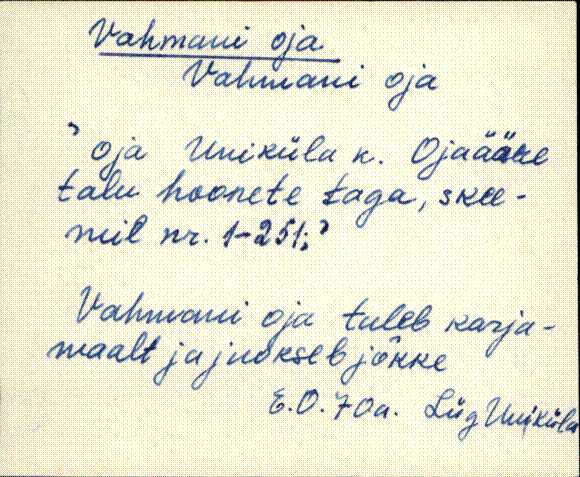 Vahmani oja
Vahmani oja
' oja Uniküla k. Ojaääre
talu hoonete taga, skee-
mil nr. 1-251;'
Vahmani oja tuleb karja-
maalt ja jookseb jõkke
E.O. 70a. Liig Uniküla